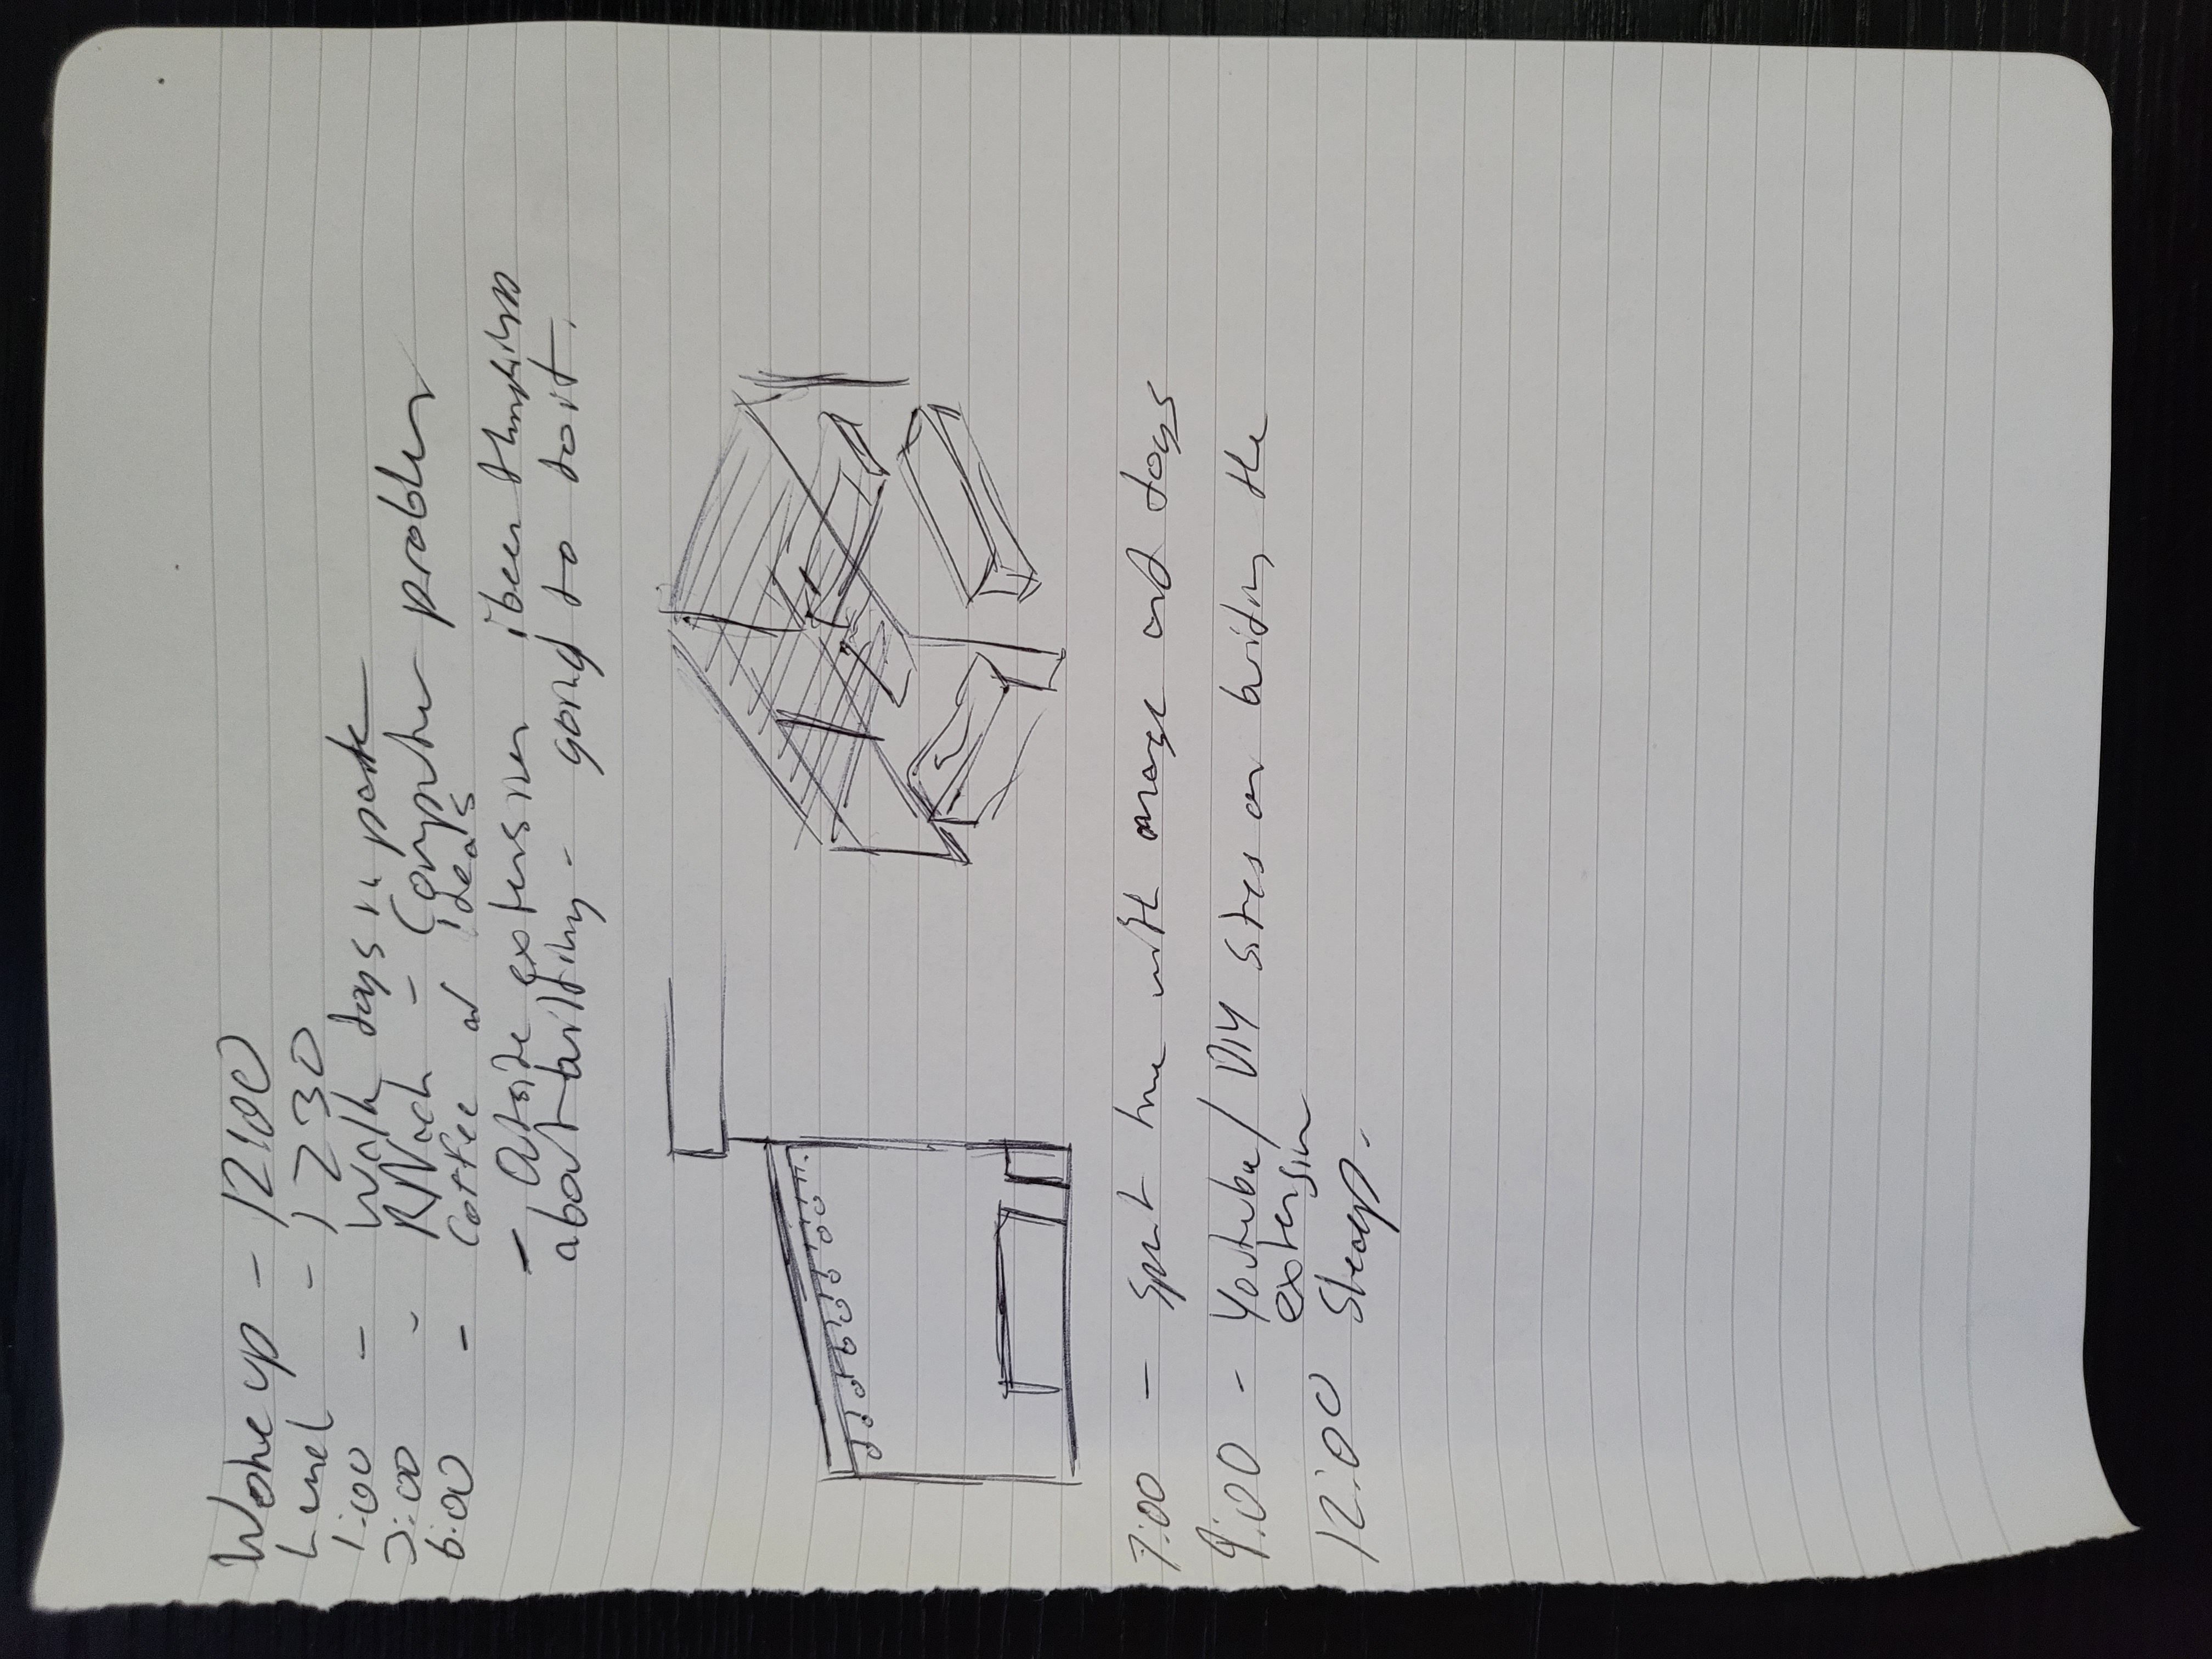 Woke up - 12:00
Lunch - 1230
1:00 - Walk dogs in park
3:00 - - Computer problem
6:00 - Coffee and ideas
- Outside extension i been thinking
about building - going to do it.
7:00 - Spent time with and dogs
9:00 - Youtube/ DIY sites on building the
extension
12:00 Sleep.